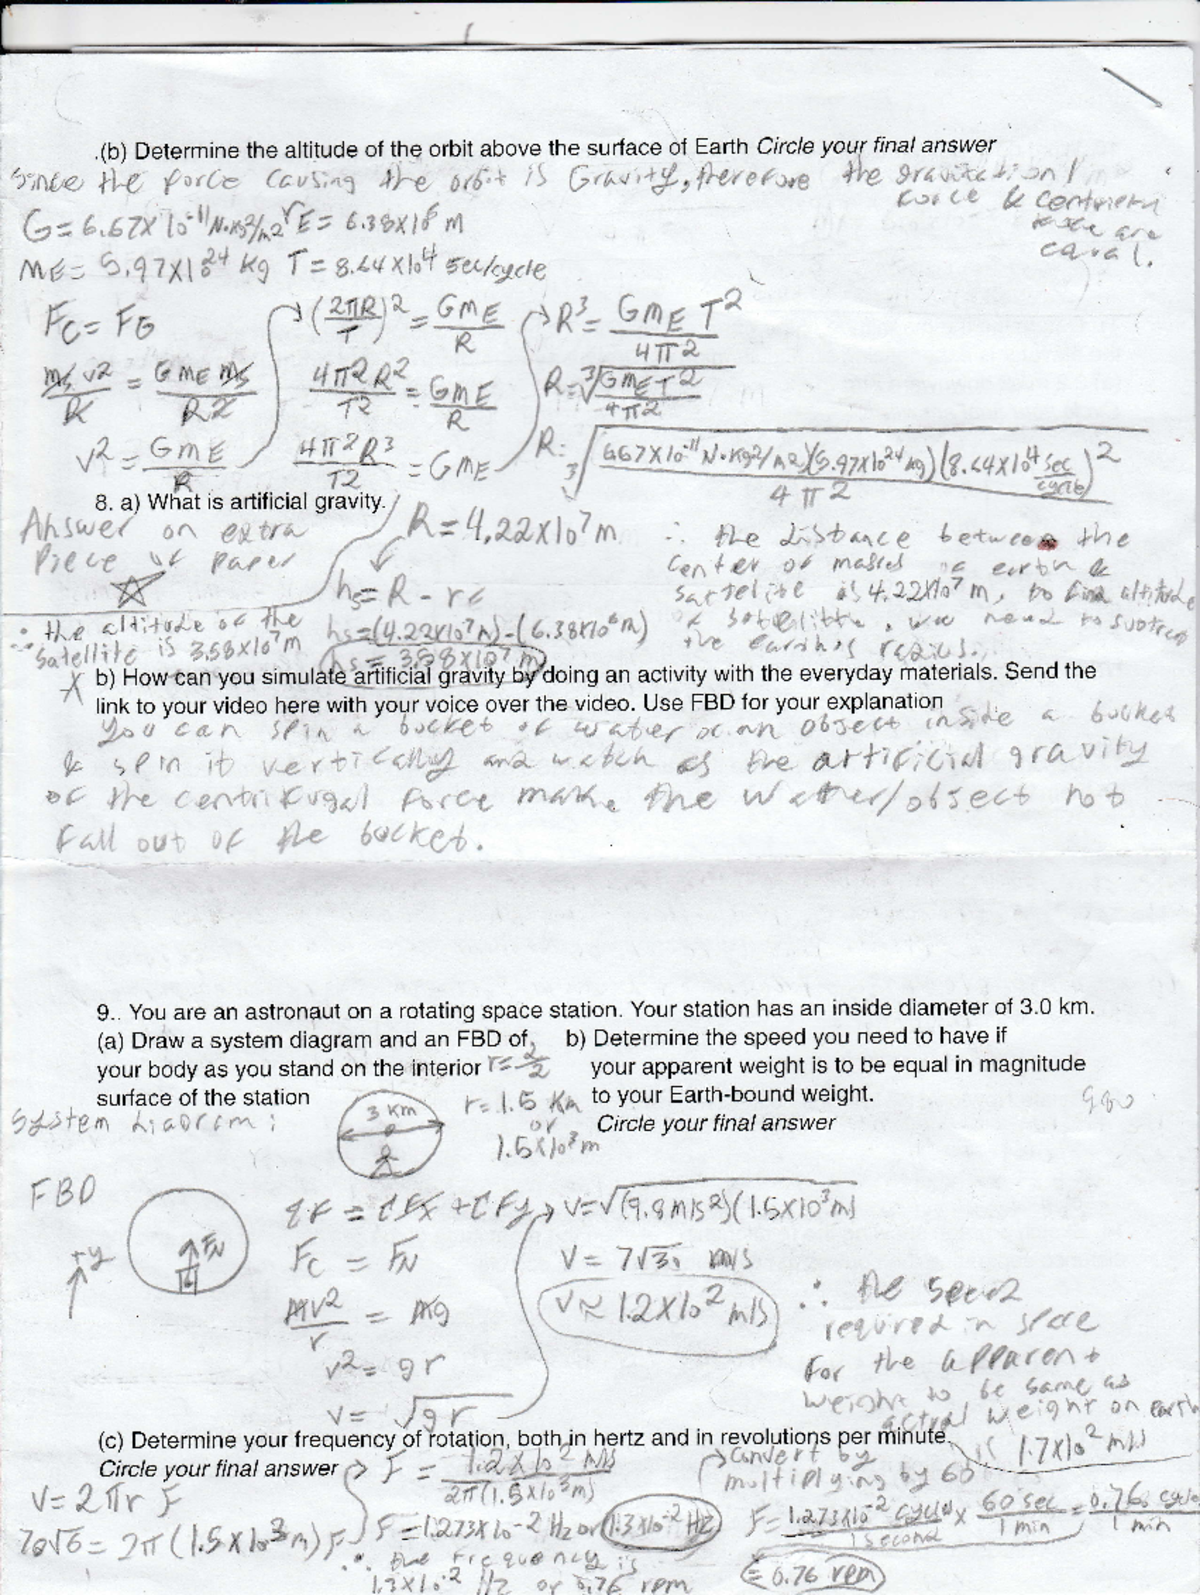 .(b) Determine the altitude of the orbit above the surface of Earth Circle your final answer
Since the force causing the orbit is Gravity, therefore the gravitation l
force & centripetal
force are
equal.
G = 6.67x10^-11 N·kg²/m² rE = 6.38x10^6 m
ME = 5.97x10^24 kg T = 8.64x10^4 sec/cycle
FC = FG
ms v²/R = G ME ms/R²
v² = GME/R
(2πR/T)² = GME/R
4π²R²/T² = GME/R
4π²R³/T² = GME
R³ = GME T²/4π²
R = ³√GMET²/4π²
R = ³√(6.67x10^-11 N·kg²/m²)(5.97x10^24 kg)(8.64x10^4 sec/cycle)²/4π²
8. a) What is artificial gravity.
Answer on extra
Piece of paper
R = 4.22x10^7 m
hs = R - rE
hs = (4.22x10^7 m) - (6.38x10^6 m)
hs = 3.58x10^7 m
∴ the distance between the
center of masses of earth &
sattelite is 4.22x10^7 m, to find altitude
of satellite, we need to subtract
the earth's radius.
∴ the altitude of the
satellite is 3.58x10^7 m
b) How can you simulate artificial gravity by doing an activity with the everyday materials. Send the
link to your video here with your voice over the video. Use FBD for your explanation
You can spin a bucket of water or an object inside a bucket
& spin it vertically and watch as the artificial gravity
of the centrifugal force make the water/object not
fall out of the bucket.
9.. You are an astronaut on a rotating space station. Your station has an inside diameter of 3.0 km.
(a) Draw a system diagram and an FBD of
your body as you stand on the interior
surface of the station
b) Determine the speed you need to have if
your apparent weight is to be equal in magnitude
to your Earth-bound weight.
Circle your final answer
System diagram:
3 km
r = 1.5 km
or
1.5x10³ m
FBD
+y
FN
FC = FN
mv²/r = mg
v² = gr
v = √gr
v = √(9.8m/s²)(1.5x10³m)
v = 7√30 m/s
v ≈ 1.2x10² m/s
∴ the speed
required in space
for the apparent
weight to be same as
actual weight on earth
is 1.7x10² m/s
(c) Determine your frequency of rotation, both in hertz and in revolutions per minute.
Circle your final answer
v = 2πr f
70√6 = 2π(1.5x10³m) f
f = 1.2x10² m/s/2π(1.5x10³m)
f = 1.273x10^-2 Hz or 1.3x10^-2 Hz
∴ the frequency is
1.3x10^-2 Hz or 0.76 rpm
convert by
multiplying by 60
f = 1.273x10^-2 cycle/1 second x 60 sec/1 min = 0.76 cycle/1 min
= 0.76 rpm